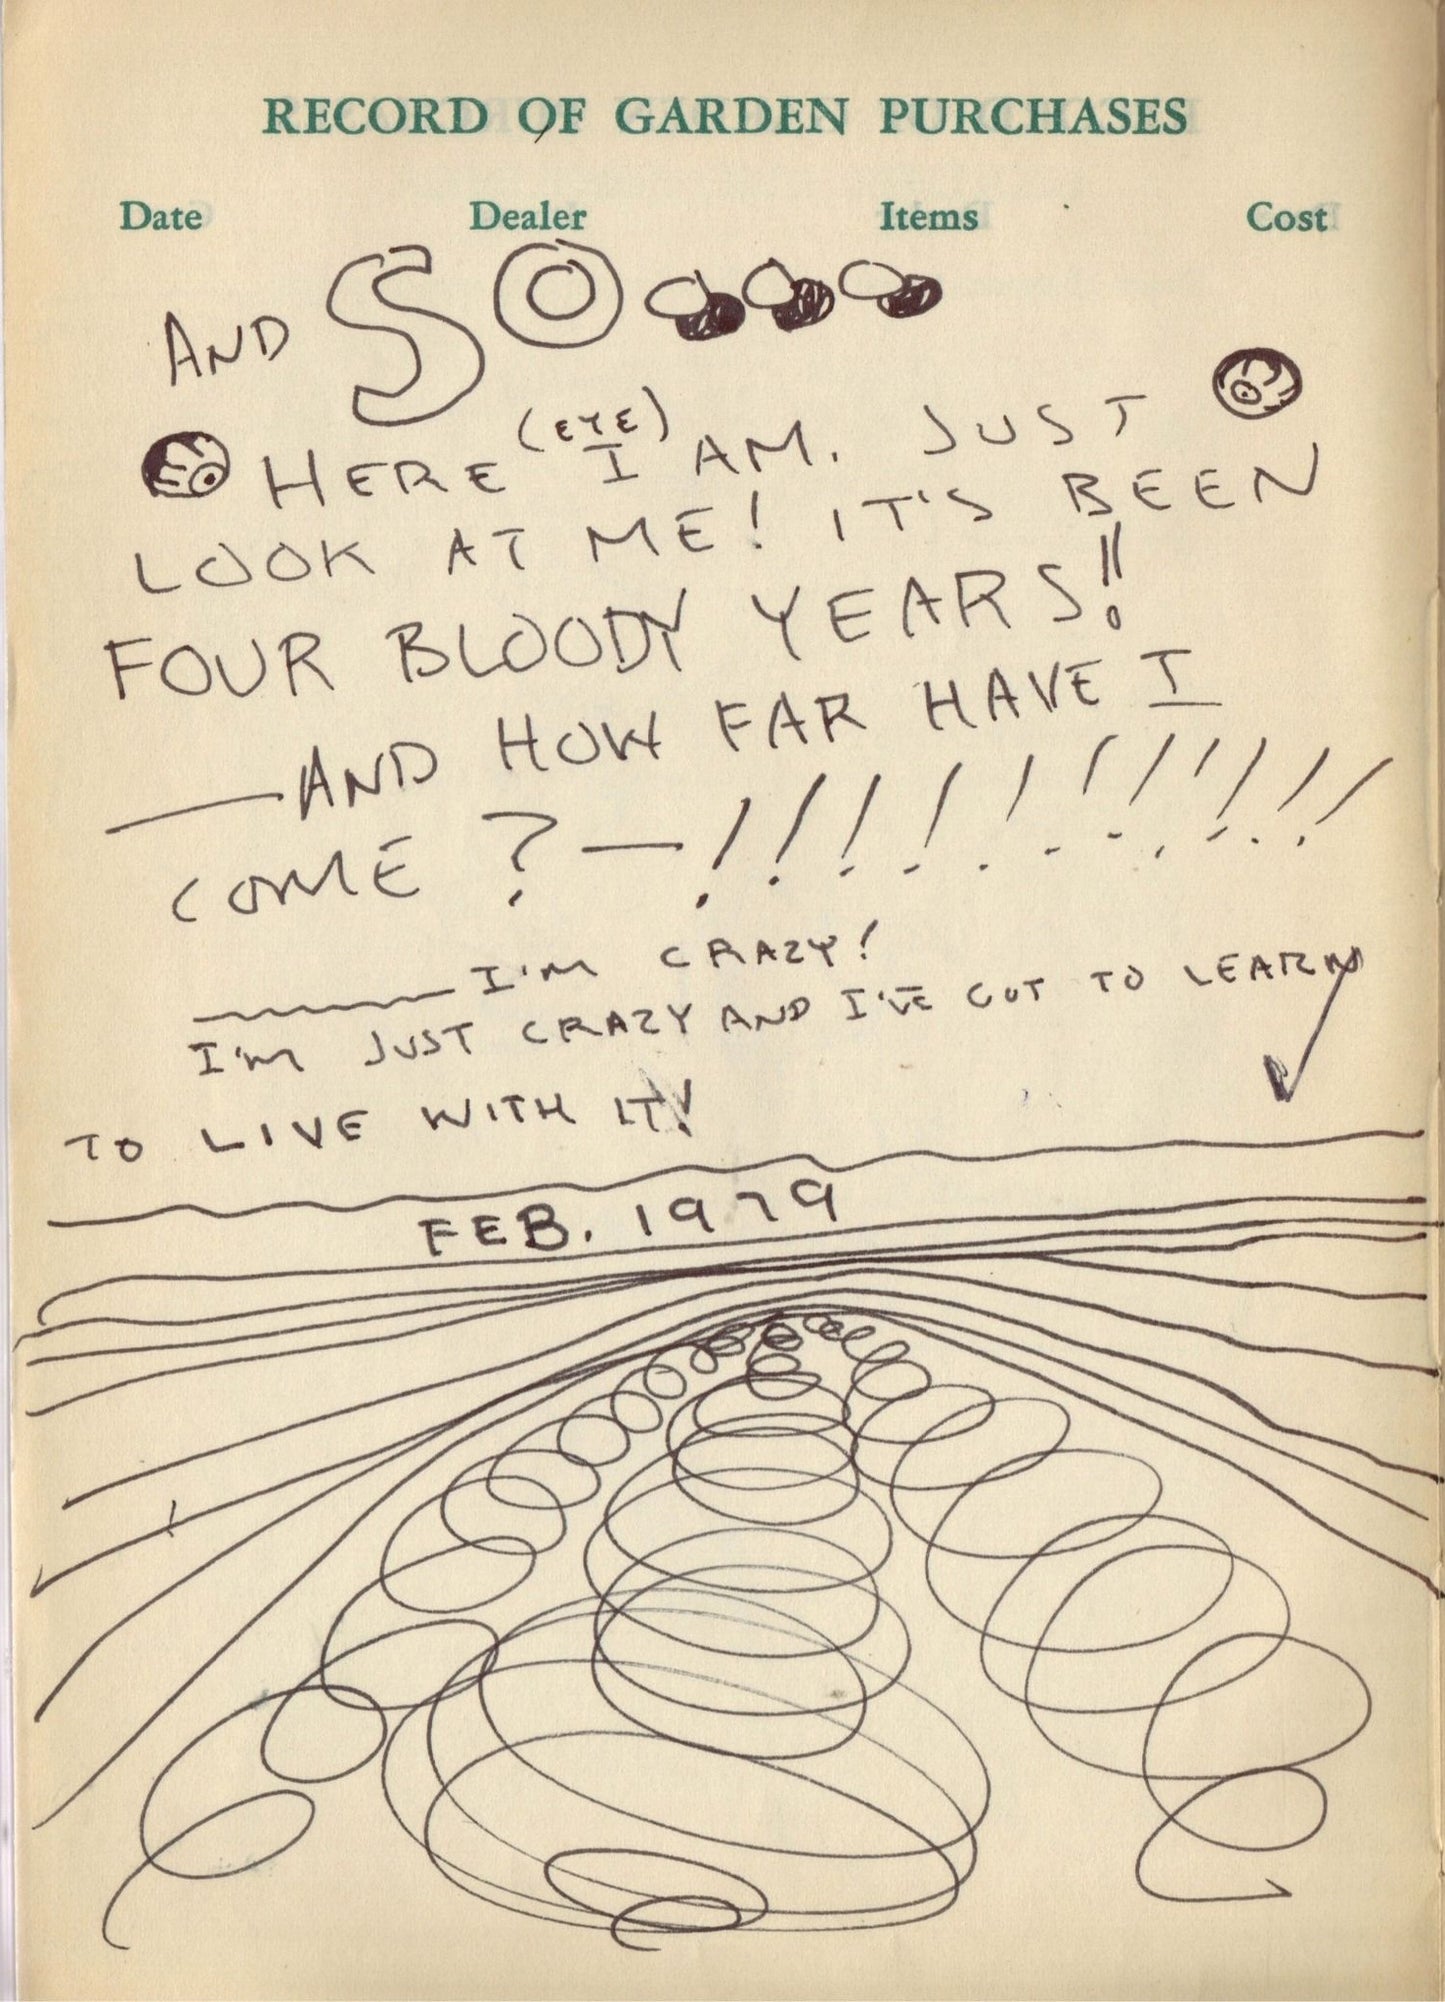 RECORD OF GARDEN PURCHASES
Date Dealer Items Cost
AND SO...
HERE (EYE) I AM. JUST
LOOK AT ME! IT'S BEEN
FOUR BLOODY YEARS!!
—AND HOW FAR HAVE I
COME ? — ! ! ! ! ! ! ! ! ! ! !
—I'M CRAZY!
I'M JUST CRAZY AND I'VE GOT TO LEARN
TO LIVE WITH IT!
FEB. 1979